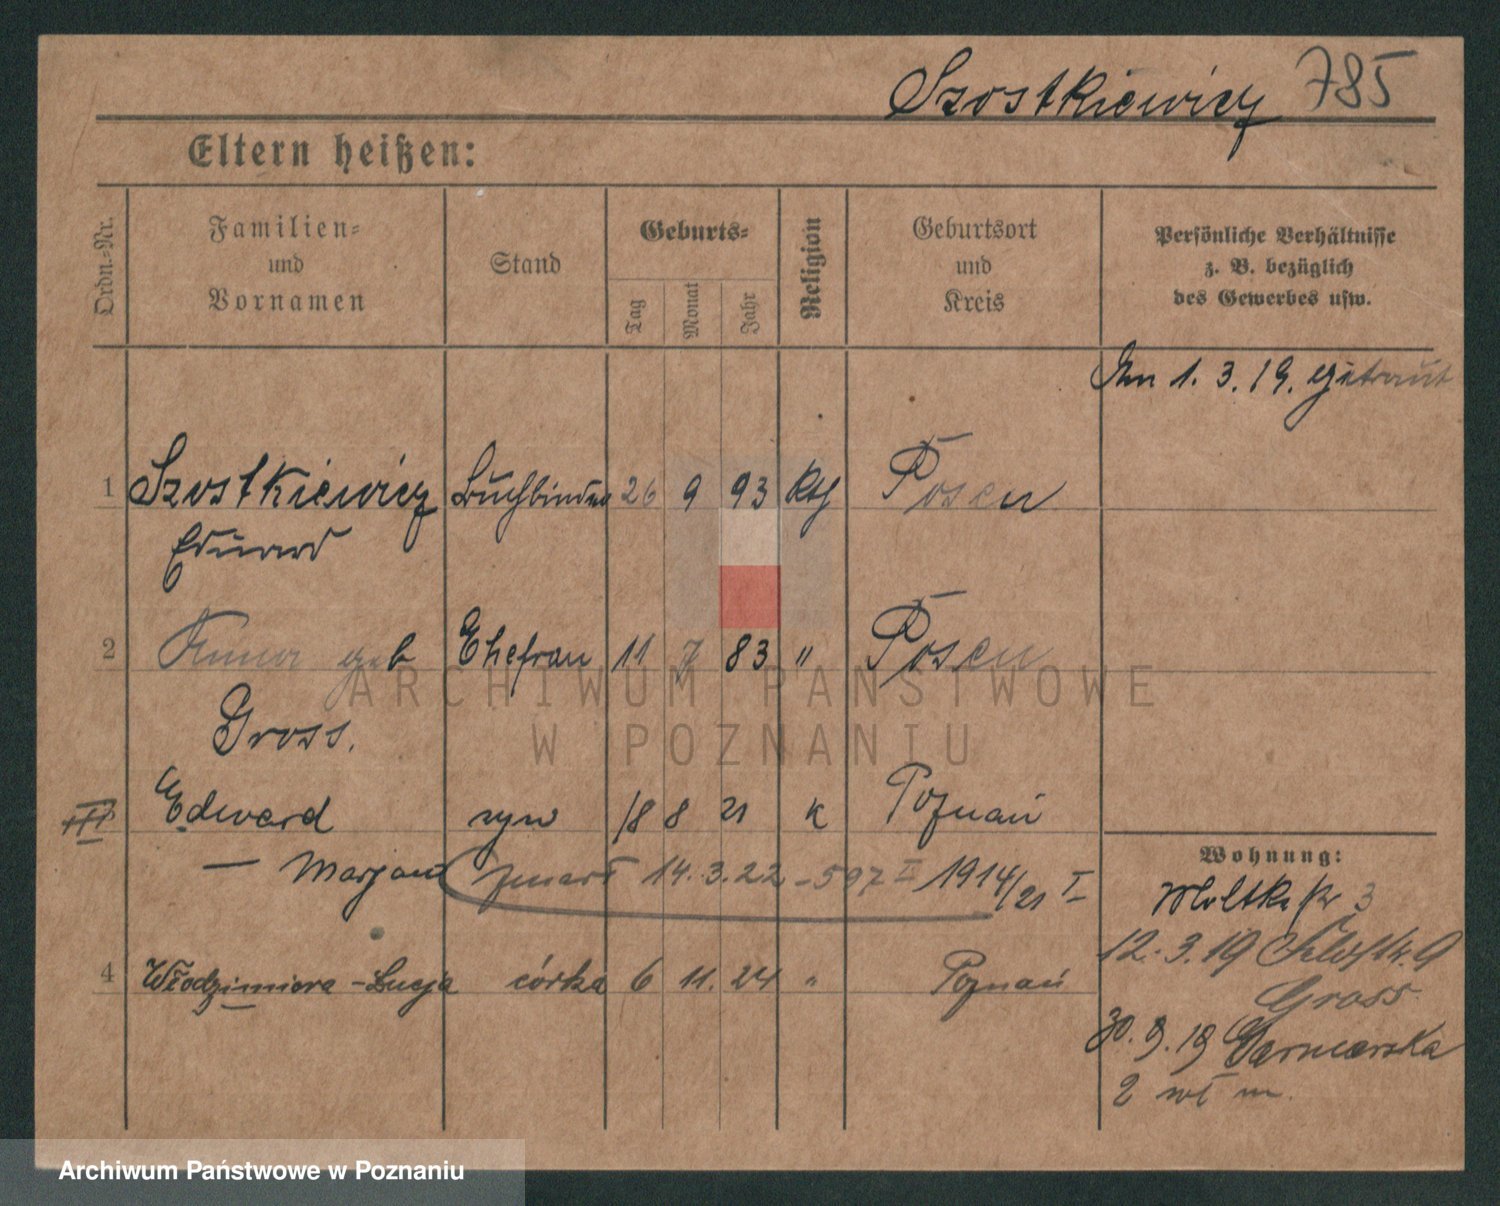 Szostkiewicz 785
Eltern heißen:
Ordn.-Nr.
Familien-
und
Vornamen
Stand
Geburts-
Tag
Monat
Jahr
Religion
Geburtsort
und
Kreis
Persönliche Verhältnisse
z. B. bezüglich
des Gewerbes usw.
Am 1. 3. 19. getraut
1 Szostkiewicz Buchbinder 26 9 93 Kth Posen
Eduard
2 Anna geb Ehefrau 11 7 83 " Posen
Gross.
Edward syn 18 8 21 K Poznań
— Marjan zmarł 14.3.22 - 597 I 1914/21 I
4 Włodzimiera - Lucja córka 6 11. 24 " Poznań
Wohnung:
Moltkestr 3
12.3.19
Gross
30.9.19
2
ARCHIWUM PAŃSTWOWE
W POZNANIU
Archiwum Państwowe w Poznaniu